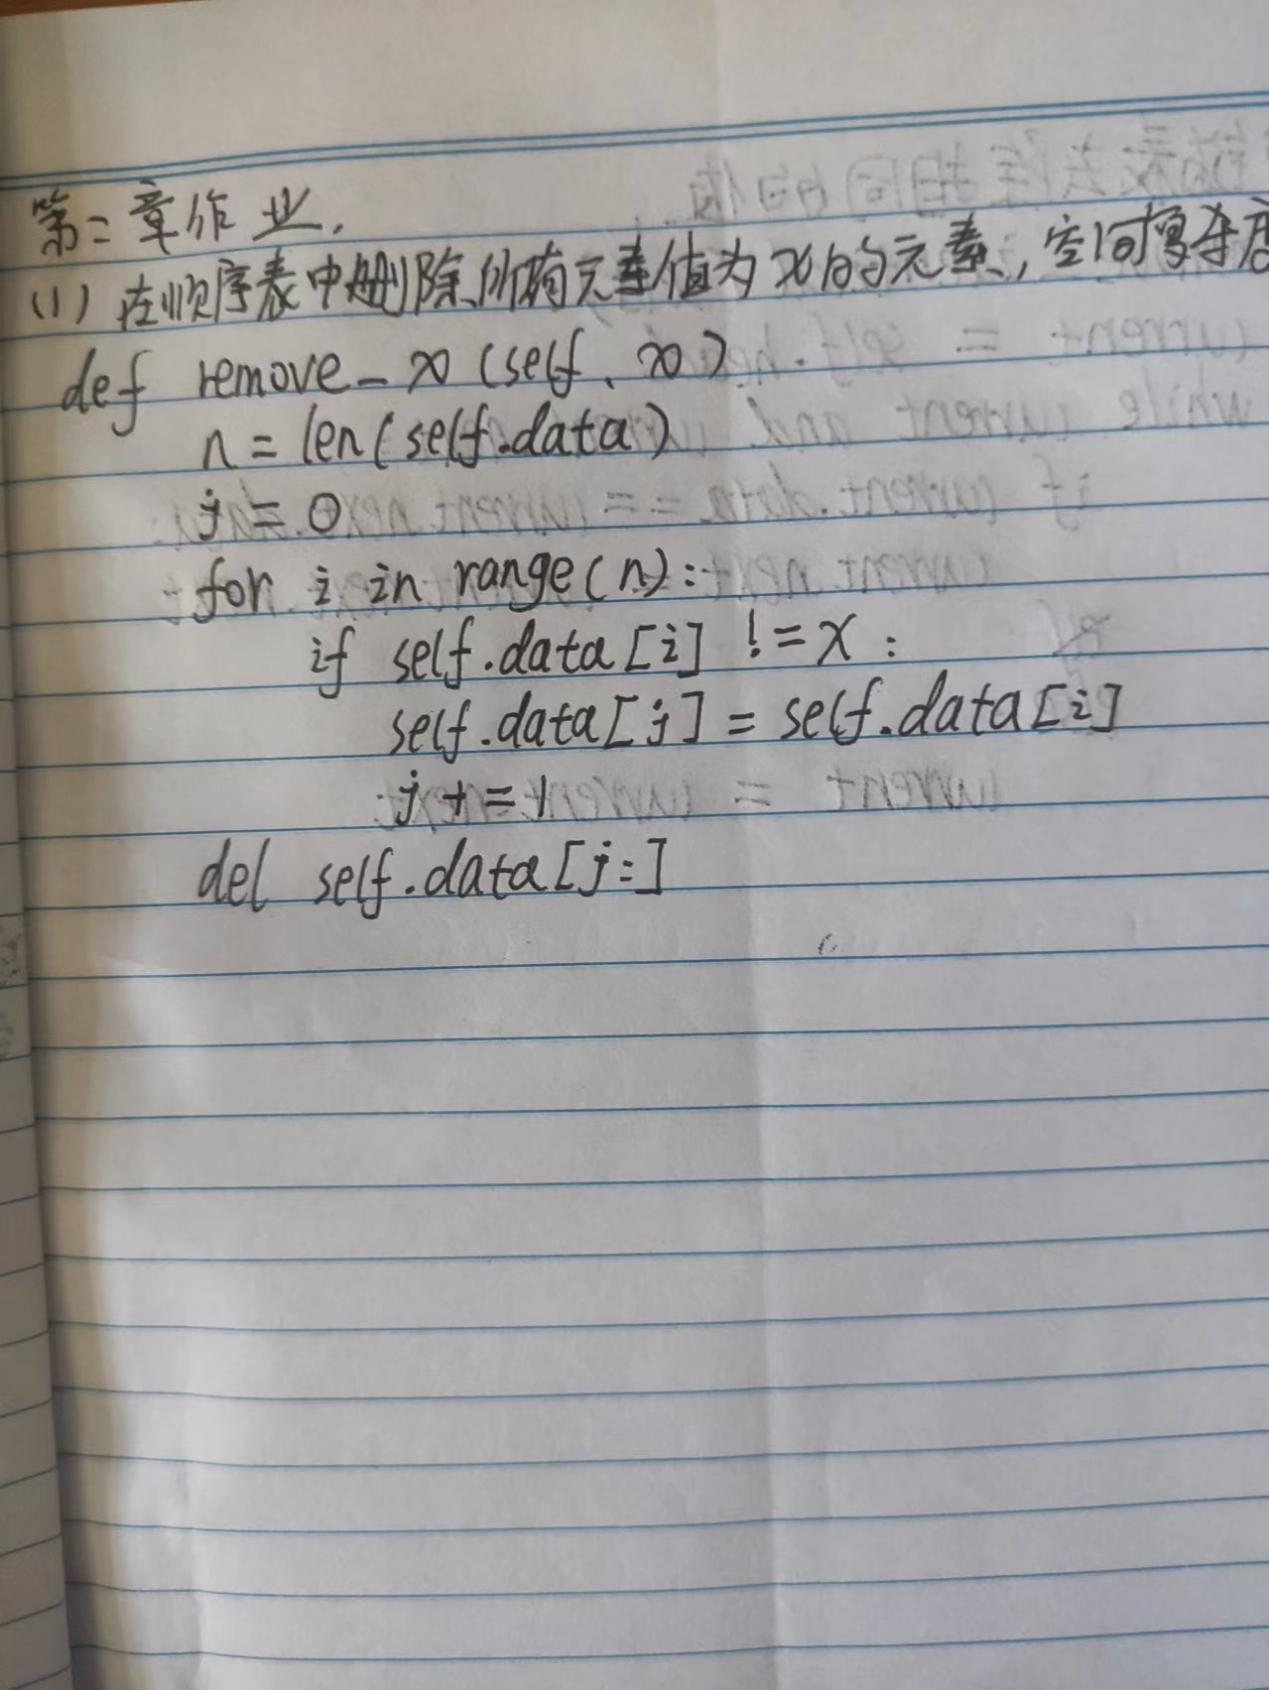 第二章作业.
(1) 在顺序表中删除所有元素值为x的元素,空间复杂度
def remove_x(self, x)
n = len(self.data)
j = 0
for i in range(n):
if self.data[i] != x :
self.data[j] = self.data[i]
j += 1
del self.data[j:]